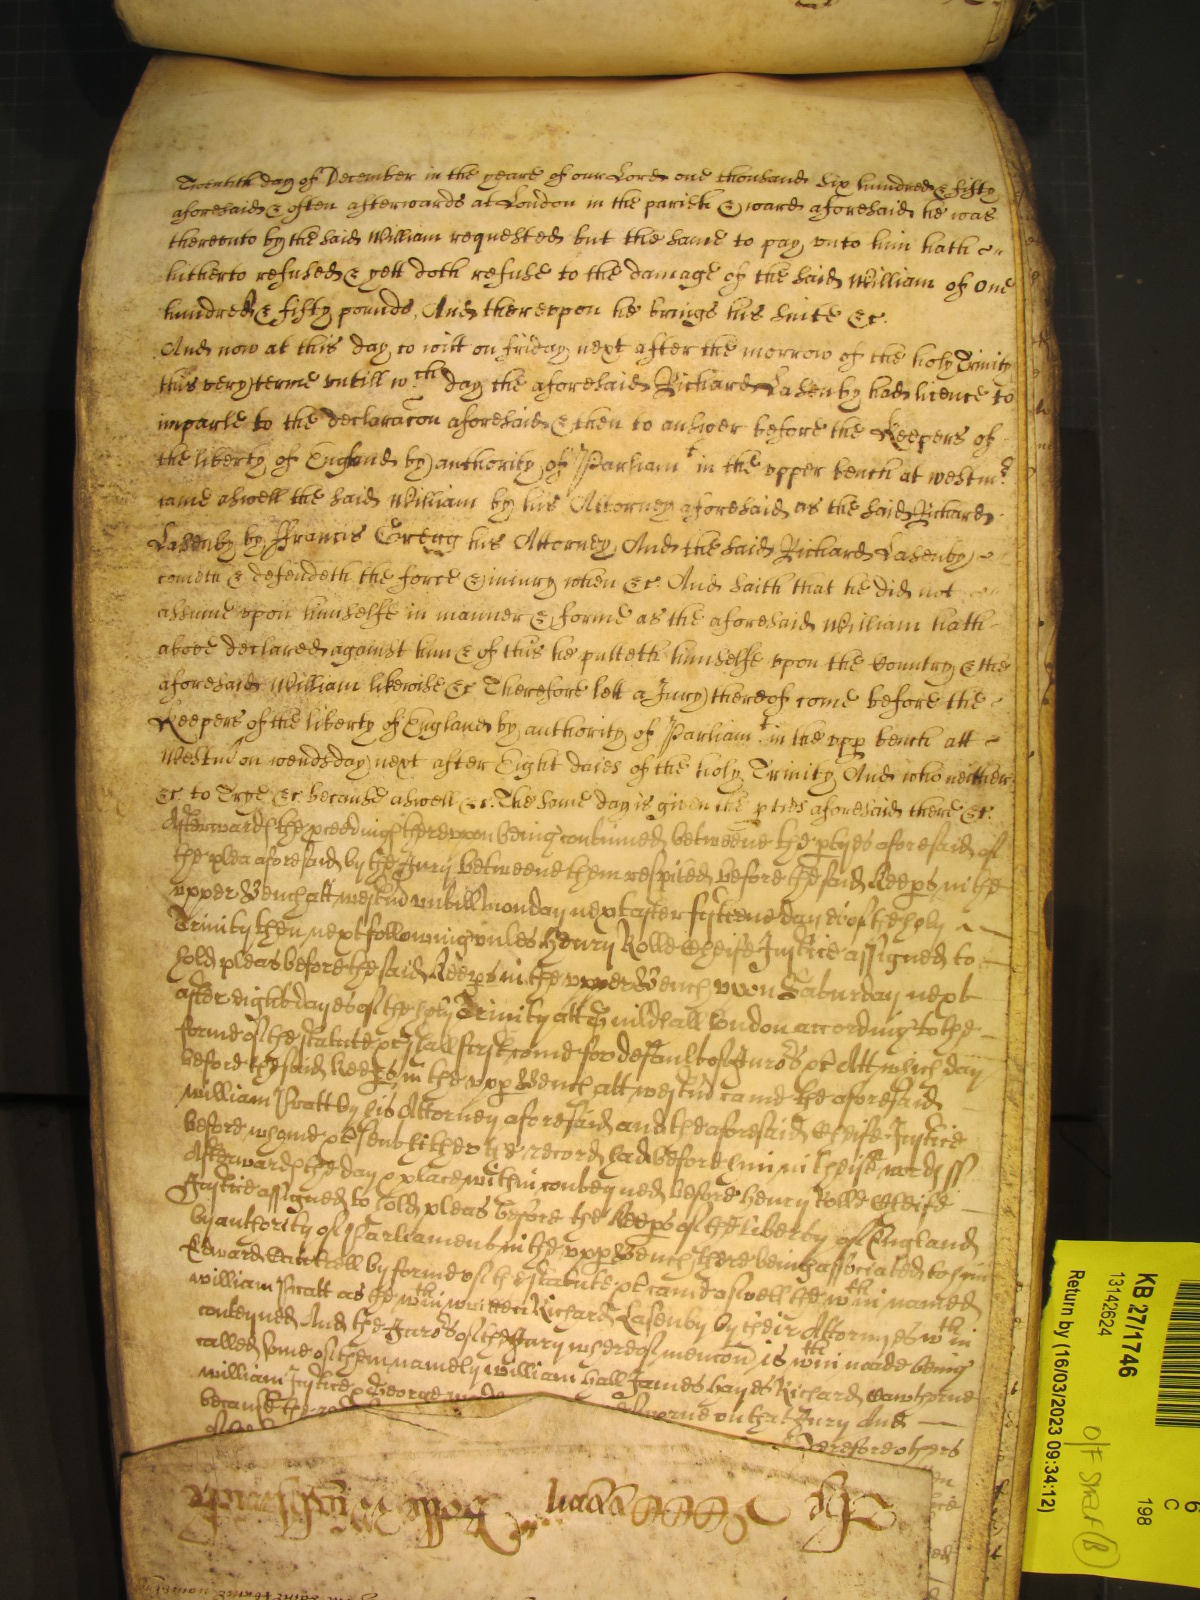 Twentith day of December in the yeare of our Lord one thousand six hundred & fifty
aforesaid & often afterwards at London in the parish & ward aforesaid he was
therevnto by the said William requested but the same to pay vnto him hath
hitherto refused & yett doth refuse to the damage of the said William of One
hundred & fifty pounds, And therevpon he brings his suite &c.
And now at this day to witt on friday next after the morrow of the holy Trinity
this very terme vntill wch day the aforesaid Richard Lasenby had licence to
imparle to the declaracon aforesaid & then to answer before the Keepers of
the liberty of England by authority of Parliamt in the vpper bench at westmr
came aswell the said William by his Attorney aforesaid as the said Richard
Lasenby by Francis Gregg his Attorney, And the said Richard Lasenby
cometh & defendeth the force & iniury when &c And saith that he did not
assume vpon himselfe in manner & forme as the aforesaid William hath
above declared against him & of this he putteth himselfe vpon the Country & the
aforesaid William likewise &c Therefore lett a Jury thereof come before the
Keepers of the liberty of England by authority of Parliamt in the vpp bench att
Westm on wendsday next after Eight daies of the holy Trinity And who neither
&c to Trye &c because aswell &c. The same day is given the pties aforesaid there &c.
Afterwards the pceedings therevpon being continued betweene the ptyes aforesaid of
the plea aforesaid by the Jury betweene them respited before the said Keeps in the
vpper Bench att westm vntill monday next after fifteene dayes of the holy
Trinity then next following vnles Henry Rolle Cheife Justice assigned to
hold pleas before the said Keeps in the vpper Bench vpon Saturday next
after eight dayes of the holy Trinity att Guildhall London according to the
forme of the statute &c shall first come for default of Jurors &c Att which day
before the said Keeps in the vpp Bench att westm came the aforesaid
William Pratt by his Attorney aforesaid and the aforesaid Cheife Justice
before whome &c sent hither his record had before him in theise words ss
Afterwards the day & place within conteyned before Henry Rolle Cheife
Justice assigned to hold pleas before the Keeps of the liberty of England
by authority of Parliament in the vpp Bench there being associated to him
Edward by forme of the statute &c came aswell the wthin named
William Pratt as the wthin written Richard Lasenby by their Attornyes wthin
conteyned And the Jurors of the Jury whereof mencon is wthin made being
called some of them namely William Hall James Hayes Richard Cawthorne
William Justice & George
because the sworne on that Jury And
Therefore others
KB 27/1746
13142624
Return by (16/03/2023 09:34:12)
6
C
198
O/F Shelf
B